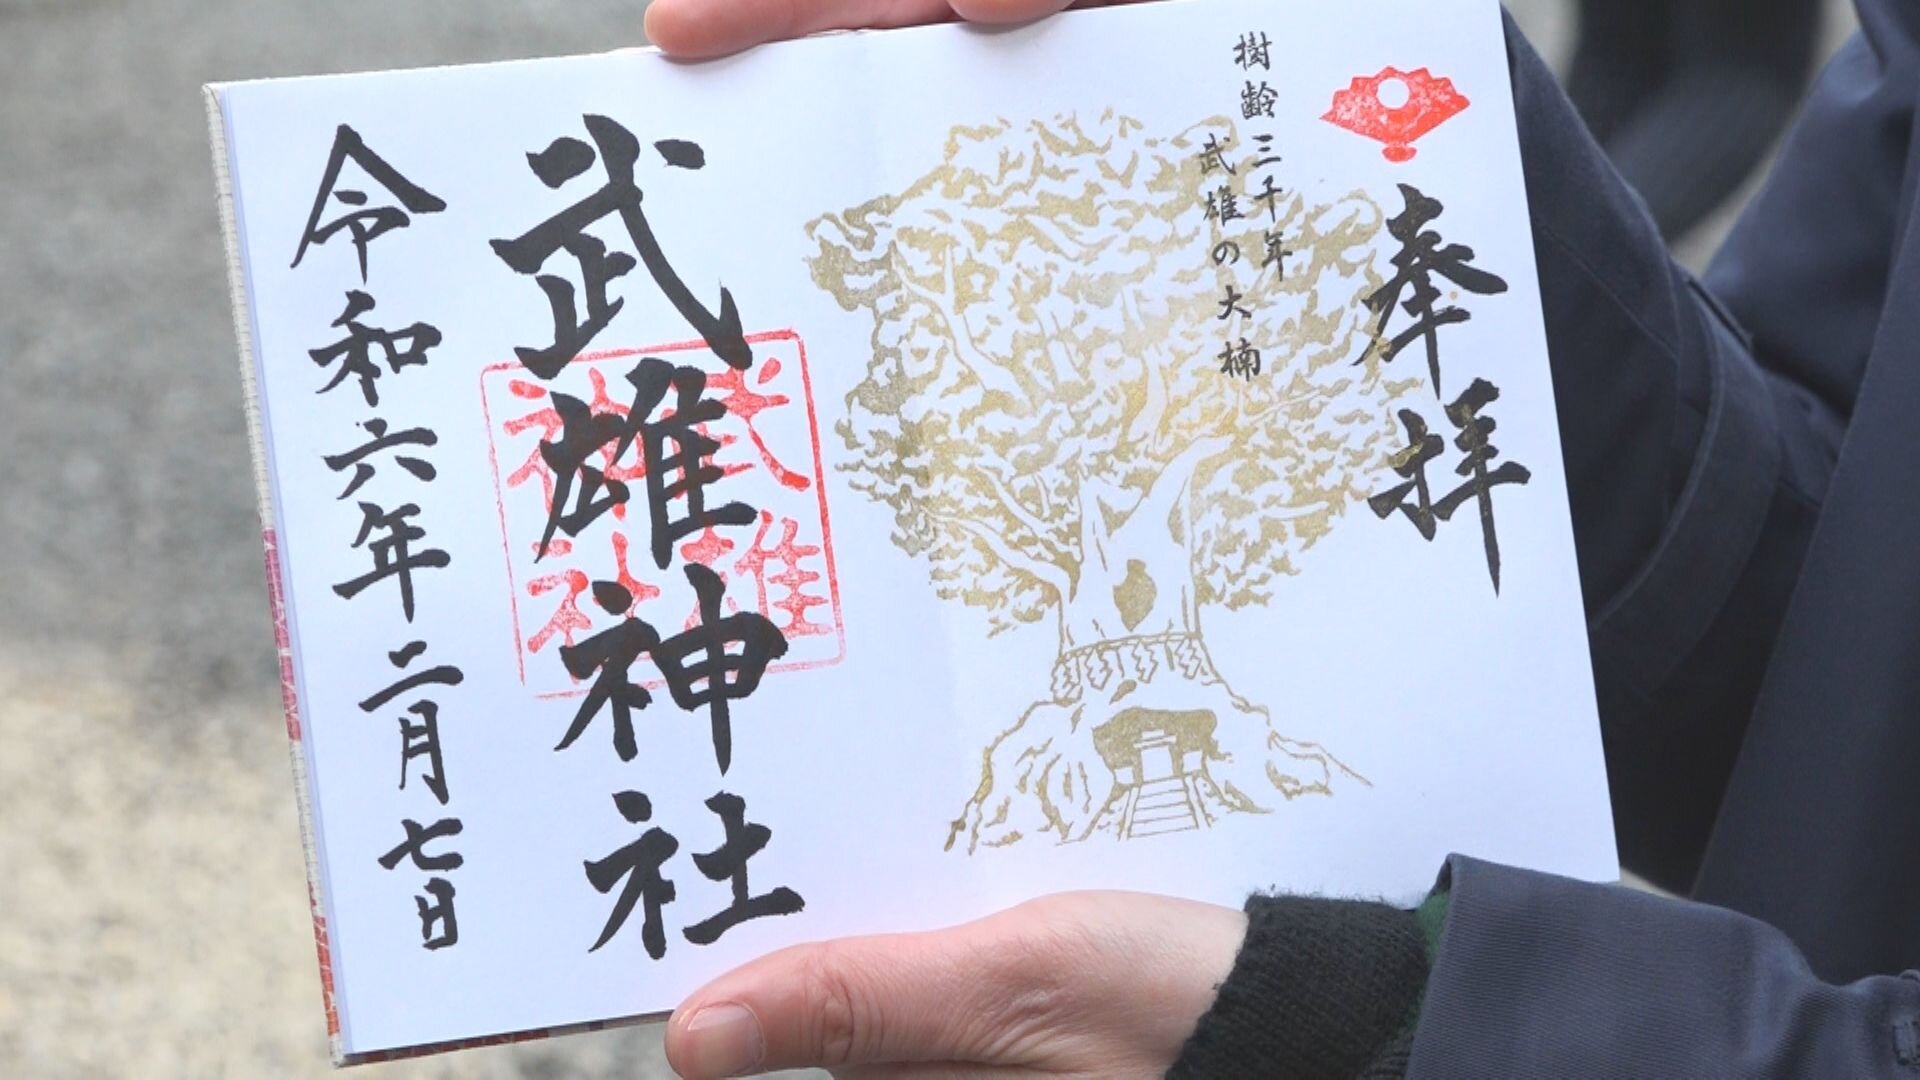 奉拝
樹齢三千年
武雄の大楠
武雄神社
武雄
神社
令和六年二月七日